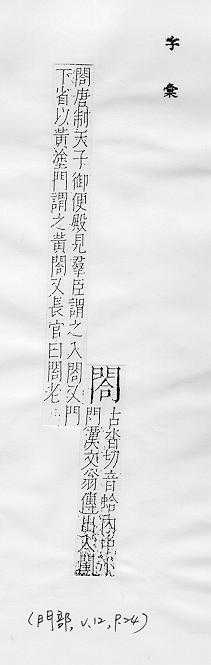 字彙
閤
古沓切音蛤內中小
門漢文翁傳出入閨
閤唐制天子御便殿見羣臣謂之入閤又門
下省以黃塗門謂之黃閤又長官曰閤老
(門部, v.12, P.24)